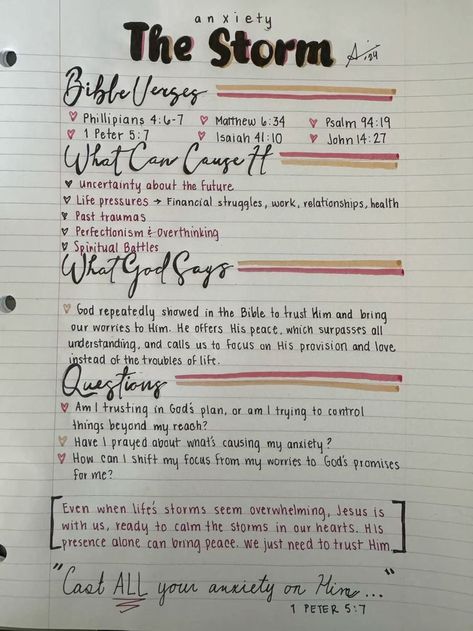 anxiety
The Storm
Bible Verses
Phillipians 4:6-7 Matthew 6:34 Psalm 94:19
1 Peter 5:7 Isaiah 41:10 John 14:27
What Can Cause It
Uncertainty about the Future
Life pressures → Financial struggles, work, relationships, health
Past traumas
Perfectionism & Overthinking
Spiritual Battles
What God Says
God repeatedly showed in the Bible to trust Him and bring
our worries to Him. He offers His peace, which surpasses all
understanding, and calls us to focus on His provision and love
instead of the troubles of life.
Questions
Am I trusting in God's plan, or am I trying to control
things beyond my reach?
Have I prayed about what's causing my anxiety?
How can I shift my focus from my worries to God's promises
for me?
Even when life's storms seem overwhelming, Jesus is
with us, ready to calm the storms in our hearts. His
presence alone can bring peace. We just need to trust Him.
"Cast ALL your anxiety on Him..."
1 PETER 5:7